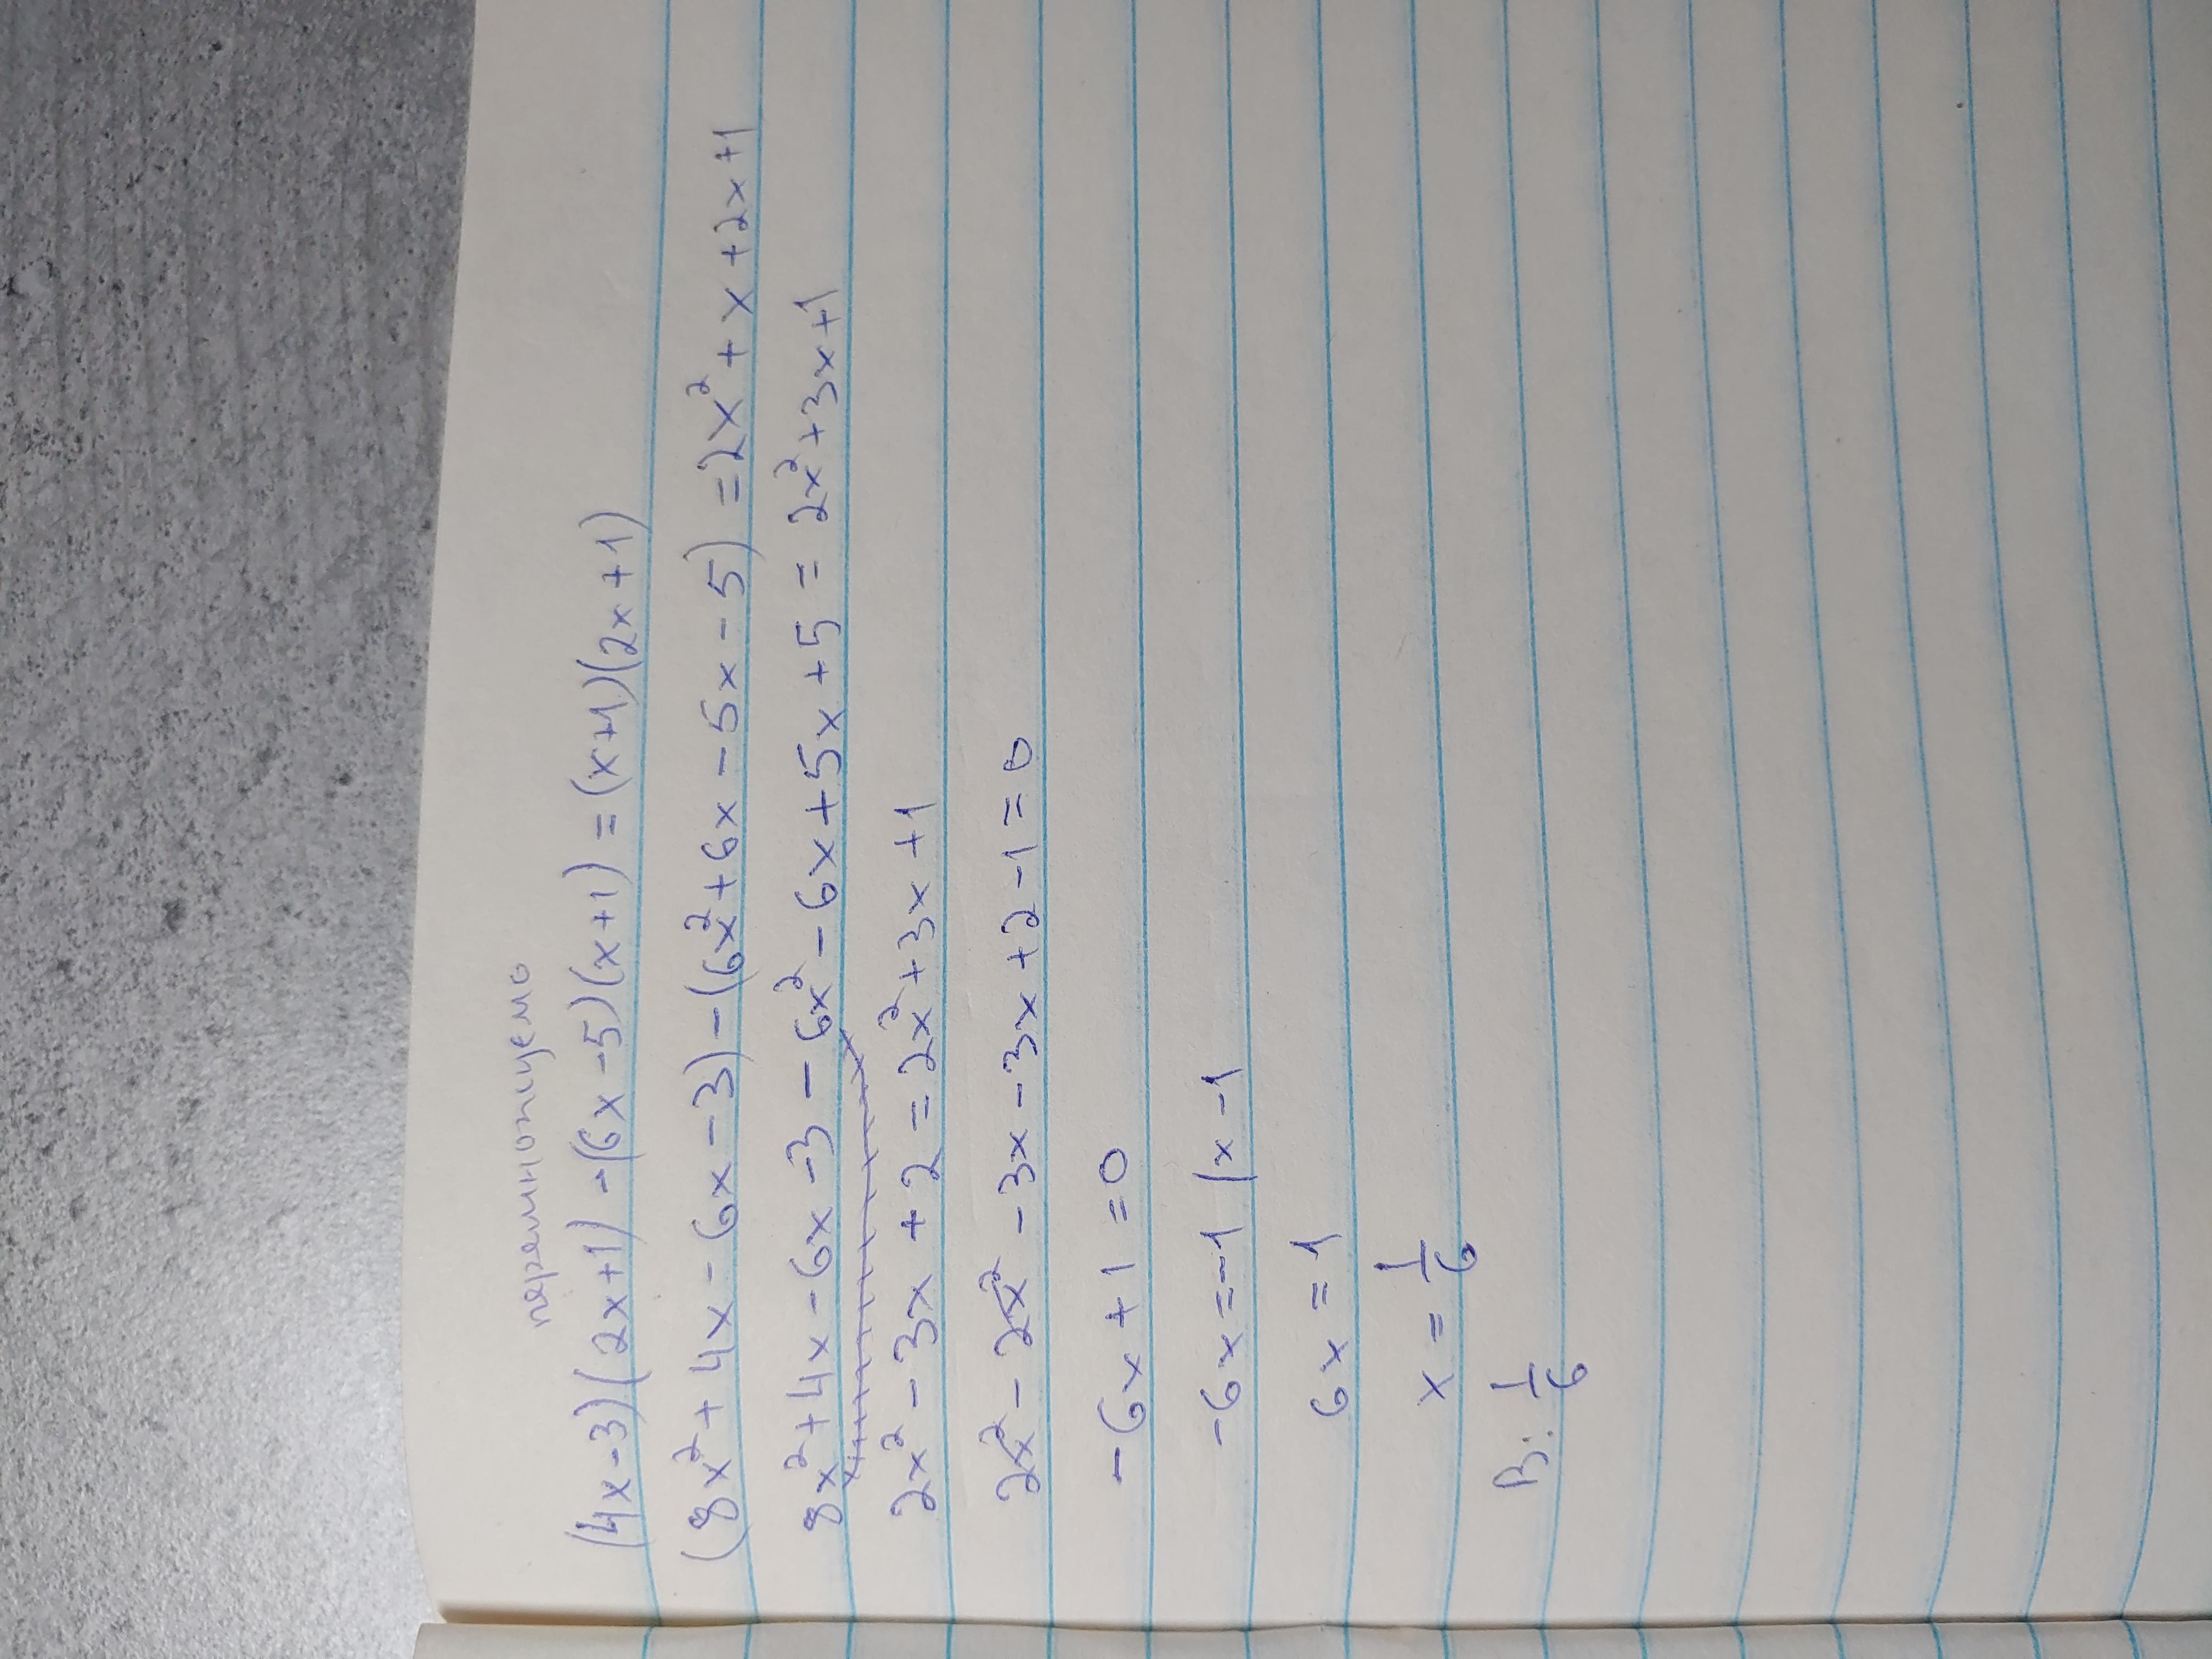 перемножуємо
(4x-3)(2x+1)-(6x-5)(x+1)=(x+1)(2x+1)
(8x²+4x-6x-3)-(6x²+6x-5x-5)=2x²+x+2x+1
8x²+4x-6x-3-6x²-6x+5x+5=2x²+3x+1
2x²-3x+2=2x²+3x+1
2x²-2x²-3x-3x+2-1=0
-6x+1=0
-6x=-1 |x-1
6x=1
x=1/6
В: 1/6